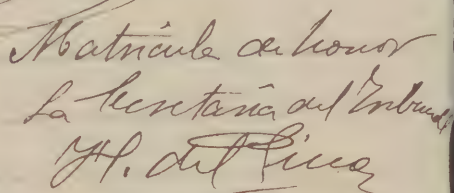 Matricula de honor
La Secretaria del Tribunal
H. del